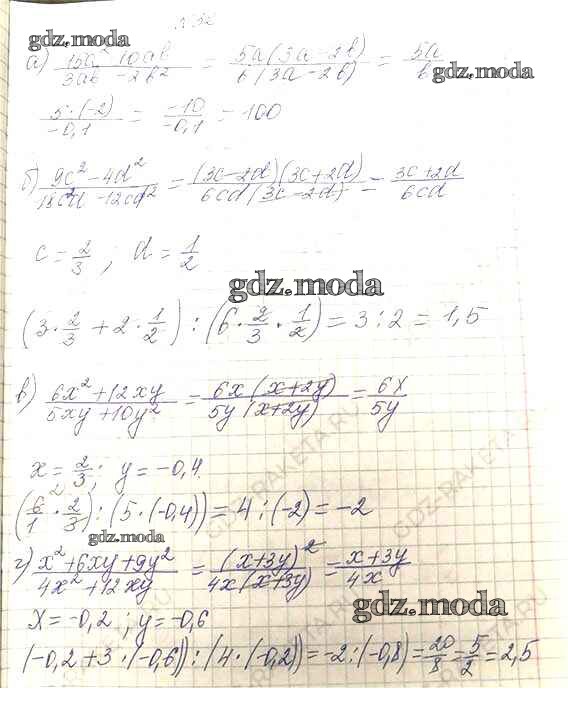 № 32
gdz.moda
а) (15a² - 10ab)/(3ab - 2b²) = 5a(3a - 2b)/b(3a - 2b) = 5a/b
gdz.moda
5·(-2)/-0,1 = -10/-0,1 = 100
б) (9c² - 4d²)/(18c²d - 12cd²) = (3c-2d)(3c+2d)/6cd(3c-2d) = (3c+2d)/6cd
c = 2/3 ; d = 1/2
gdz.moda
(3·2/3 + 2·1/2) : (6·2/3·1/2) = 3:2 = 1,5
в) (6x² + 12xy)/(5xy + 10y²) = 6x(x+2y)/5y(x+2y) = 6x/5y
x = 2/3; y = -0,4.
(6/1 · 2/3) : (5·(-0,4)) = 4:(-2) = -2
gdz.moda
г) (x² + 6xy + 9y²)/(4x² + 12xy) = (x+3y)²/4x(x+3y) = (x+3y)/4x
gdz.moda
x = -0,2 ; y = -0,6
(-0,2 + 3·(-0,6)) : (4·(-0,2)) = -2:(-0,8) = 20/8 = 5/2 = 2,5
GDZ-RAKETA.RU
GDZ-RAKETA.RU